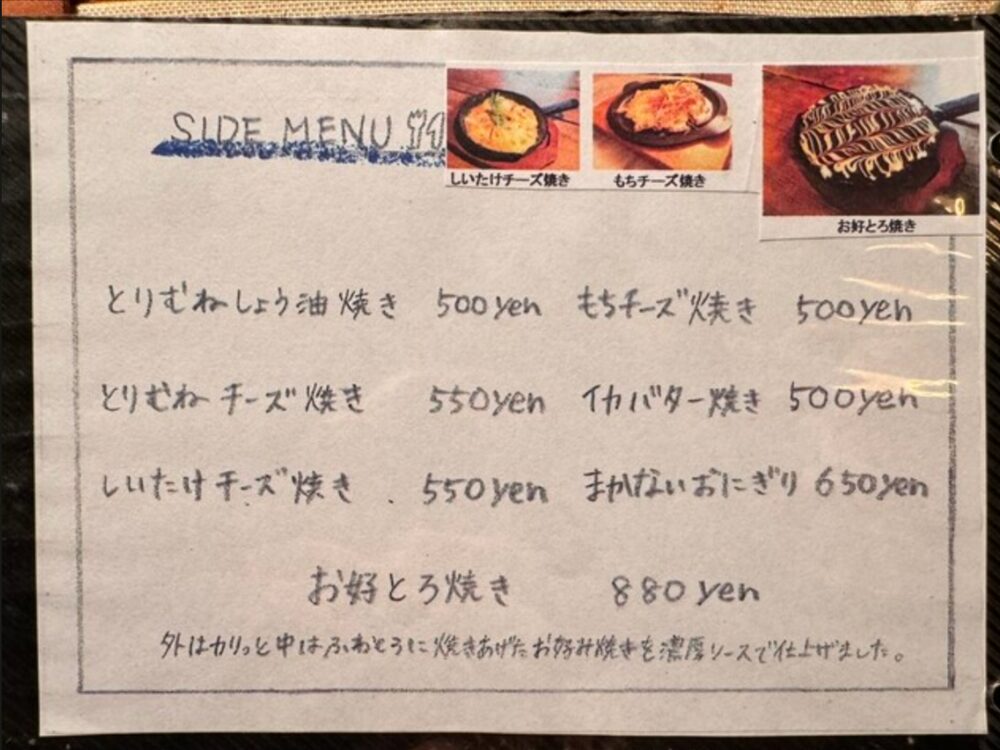 SIDE MENU
しいたけチーズ焼き
もちチーズ焼き
お好とろ焼き
とりむねしょう油焼き 500yen もちチーズ焼き 500yen
とりむねチーズ焼き 550yen イカバター焼き 500yen
しいたけチーズ焼き 550yen まかないおにぎり 650yen
お好とろ焼き 880yen
外はカリっと中はふわとろに焼きあげたお好み焼きを濃厚ソースで仕上げました。